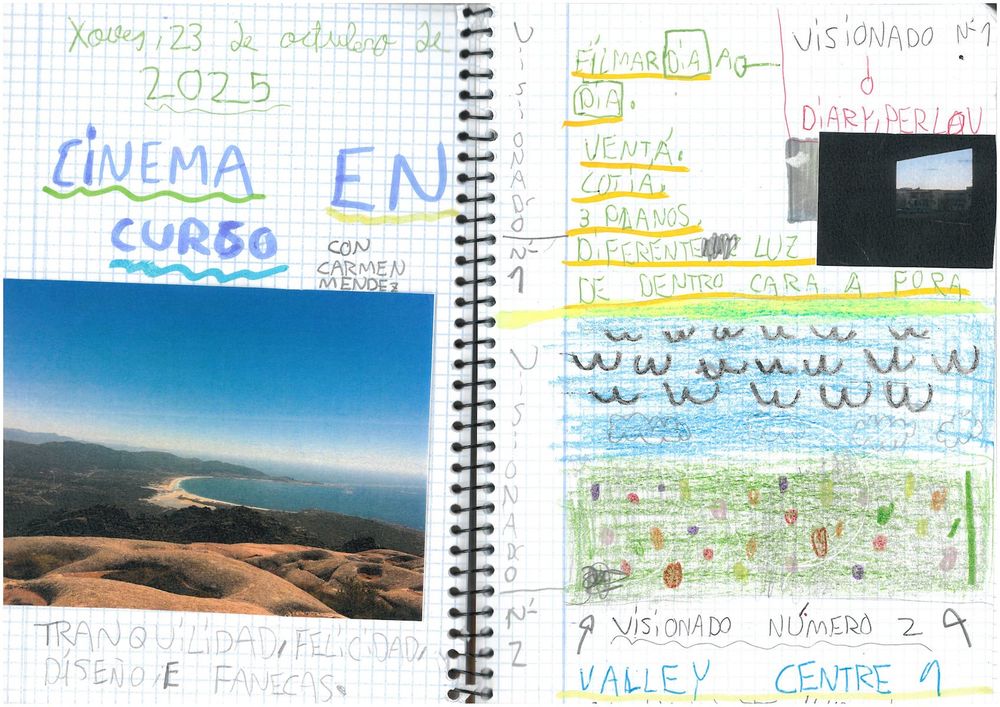 Xoves, 23 de octubro de
2025
CINEMA EN
CURSO
CON
CARMEN
MENDEZ
TRANQUILIDAD, FELICIDAD,
DISEÑO, E FANECAS.
VISIONADO Nº 1
VISIONADO Nº 2
FILMAR DÍA A
DÍA.
VENTÁ.
COTIA.
3 PLANOS.
DIFERENTE LUZ
DE DENTRO CARA A FORA
VISIONADO Nº 1
DIARY, PERLOV
VISIONADO NÚMERO 2
VALLEY CENTRE 1